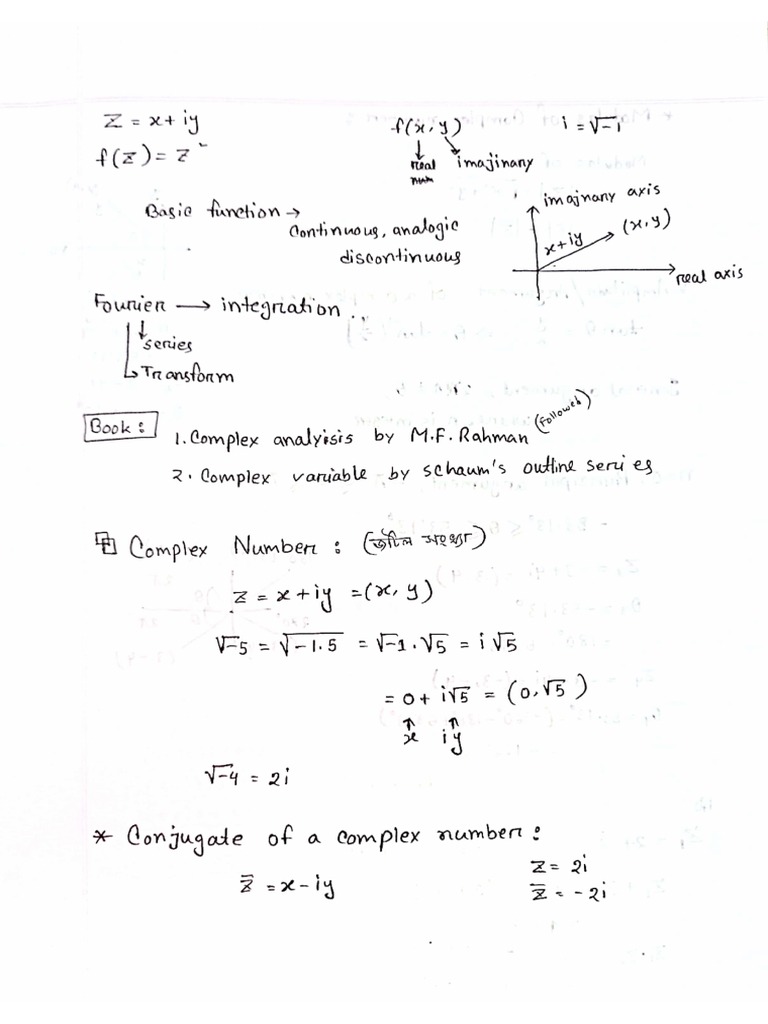 Z = x + iy
f(z) = z²
f(x, y)
i = √-1
real num
imajinary
Basic function →
continuous, analogic
discontinuous
imajnary axis
x+iy
(x, y)
real axis
Fourier → integration .,
↓ series
↳ Transform
Book :
1. Complex analyisis by M.F. Rahman (followed)
2. Complex variable by schaum's outline series
Complex Number : (জটিল সংখ্যা)
z = x + iy = (x, y)
√-5 = √-1.5 = √-1 . √5 = i √5
= 0 + i√5 = (0, √5)
↑ ↑
x iy
√-4 = 2i
* Conjugate of a complex number :
z̄ = x - iy
z = 2i
z̄ = -2i